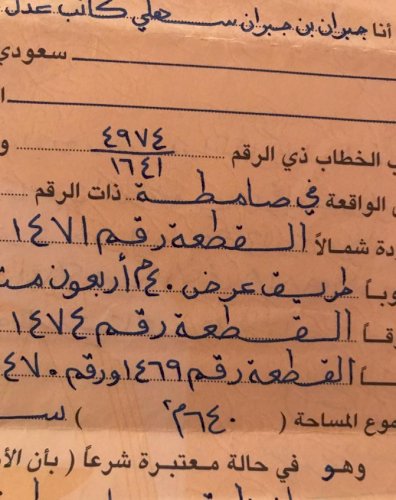 أنا جبران بن جبران سهلي كاتب عدل
سعودي
الخطاب ذي الرقم ٤٩٧٤
١٦٤١
الواقعة في صامطة ذات الرقم
دة شمالاً القطعة رقم ١٤٧١
وباً طريق عرض ٤٠م أربعون مت
رقاً القطعة رقم ١٤٧٤
القطعة رقم ١٤٦٩ ورقم ٤٧٠
موع المساحة ( ٦٤٠م٢ )
وهو في حالة معتبرة شرعاً ( بأن الأ